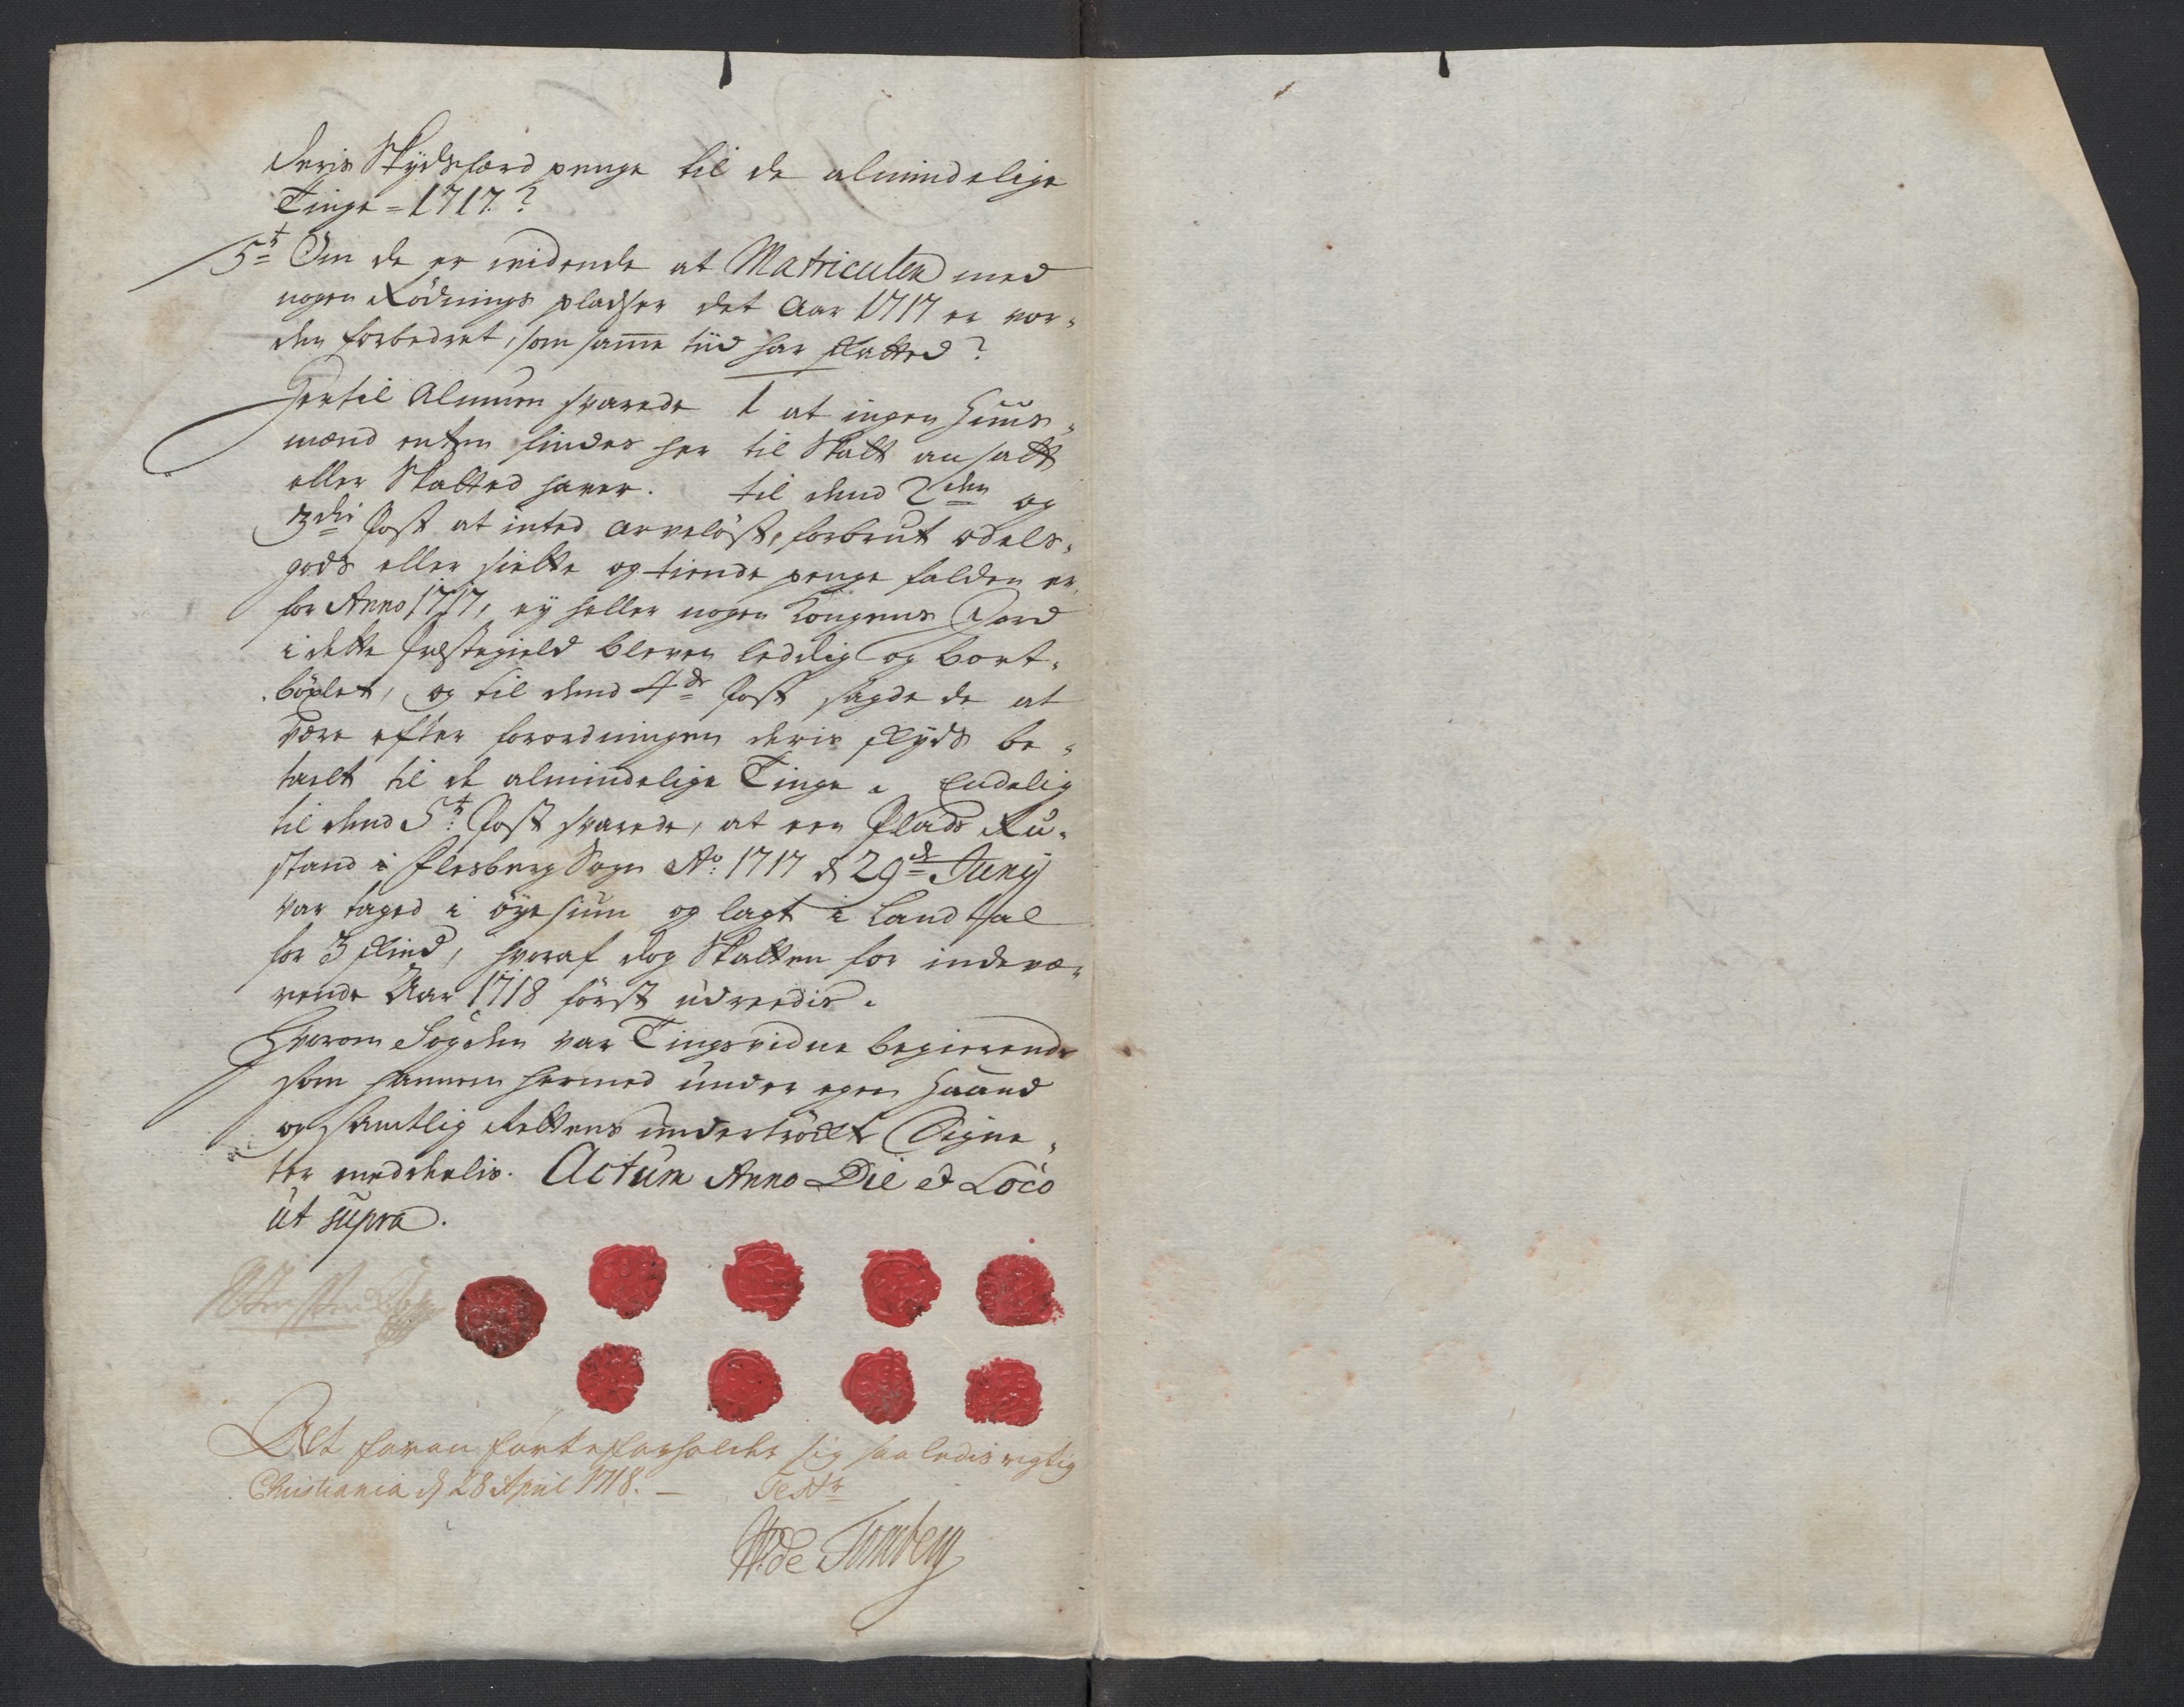 deris Skydsfærd penge til de almindelige
Tinge = 1717?
5t Om de er vidende at Matriculen med
nogen Rödnings pladser det Aar 1717 er vor-
den forbedret, som samme tiid har skatted?
Hertil Almuen svarede 1 at ingen Huus-
mænd enten findes her til Skatt ansatt
eller Skatted haver. til dend 2den og
3die Post at inted arvelöst, forbrut odels-
gods eller siette og tiende penge falden er
for Anno 1717, ey heller nogen Kongens Jord
i dette Præstegield bleven ledig og bort-
böxlet, og til dend 4de Post sagde de at
være efter forordningen deris skyds be-
talt til de almindelige Tinge. Endelig
til dend 5t Post svarede, at een Plads Ru-
stand i Flesberg Sogn Ao: 1717 d 29de Junij
var taged i öyesiun og lagt i Landtal
for 3 skind, hvoraf dog Skatten for indevæ-
rende Aar 1718 först udreedis.
Hvorom Fogden var Tingsvidne begierende
som hannem hermed under egen Haand
og samtlig Rettens undertröckte Signe-
ter meddeelis. Actum Anno Die et Loco
ut supra.
Alt foran förte forholder sig saaledis rigtig
Christiania d 28 April 1718. — Test:
de Tonsberg